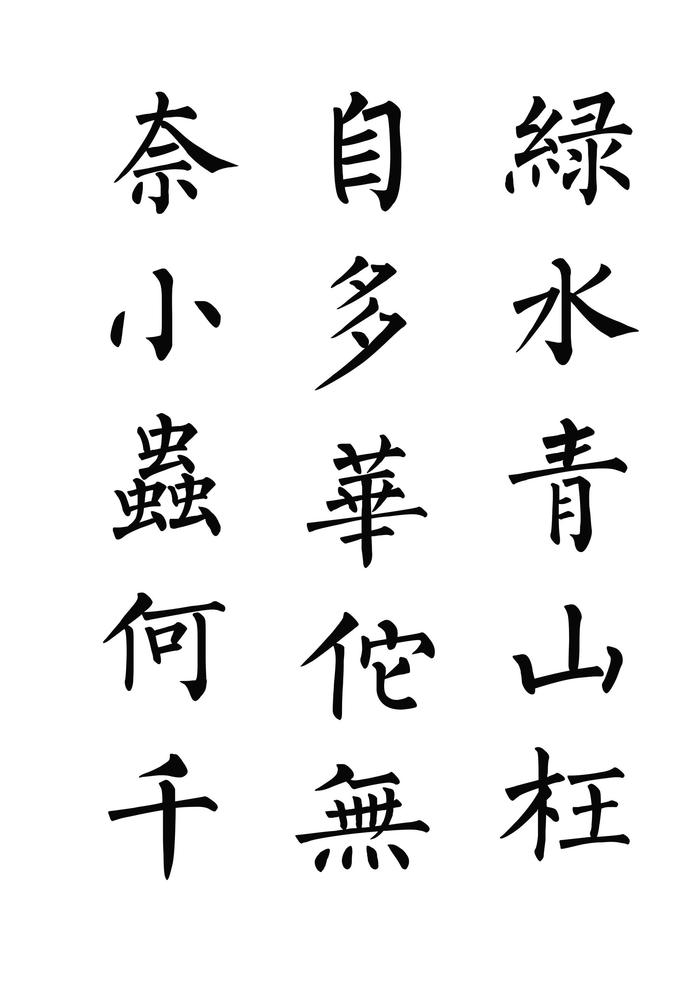 緑水青山枉
自多華佗無
奈小蟲何千